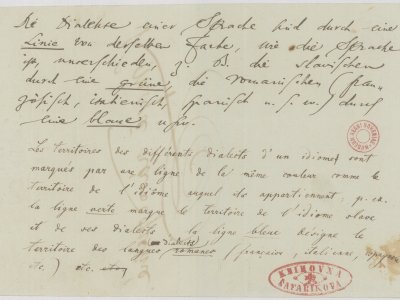 Die Dialekte einer Sprache sind durch eine
Linie von derselben Farbe, wie die Sprache
ist, unterschieden, z. B. die slavischen
durch eine grüne, die romanischen (fran-
zösisch, italienisch, spanisch u. s. w.) durch
eine blaue usw.
Les territoires des différents dialects d'un idiome sont
marqués par une ligne de la même couleur comme le
territoire de l'idiôme auquel ils appartiennent, p. ex.
la ligne verte marque le territoire de l'idiome slave
et de ses dialects la ligne bleue désigne le
dialects
territoire des langues romanes (française, italienne, espagnole
etc.) etc.
KNIHOVNA
ŠAFAŘÍKOVA